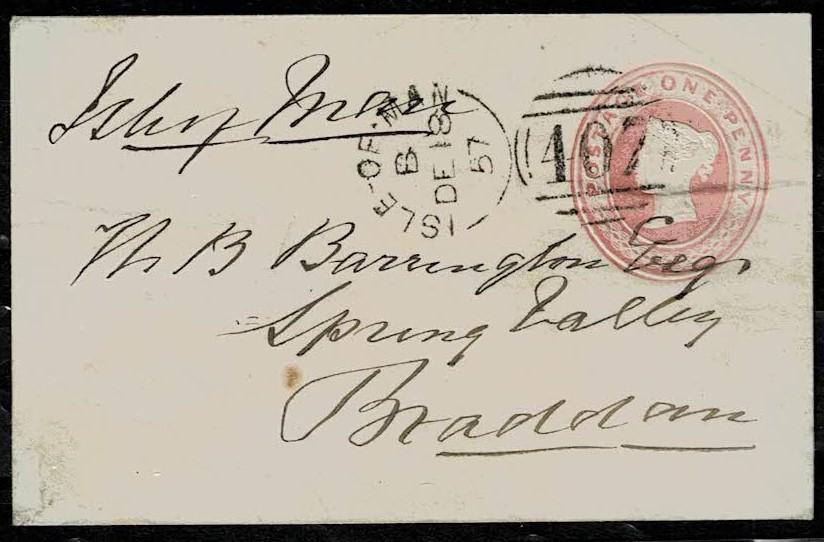 Isle of Man
ISLE-OF-MAN
B
DE 18
57
407
POSTAGE ONE PENNY
B Barrington Esqr
Spring Valley
Braddan